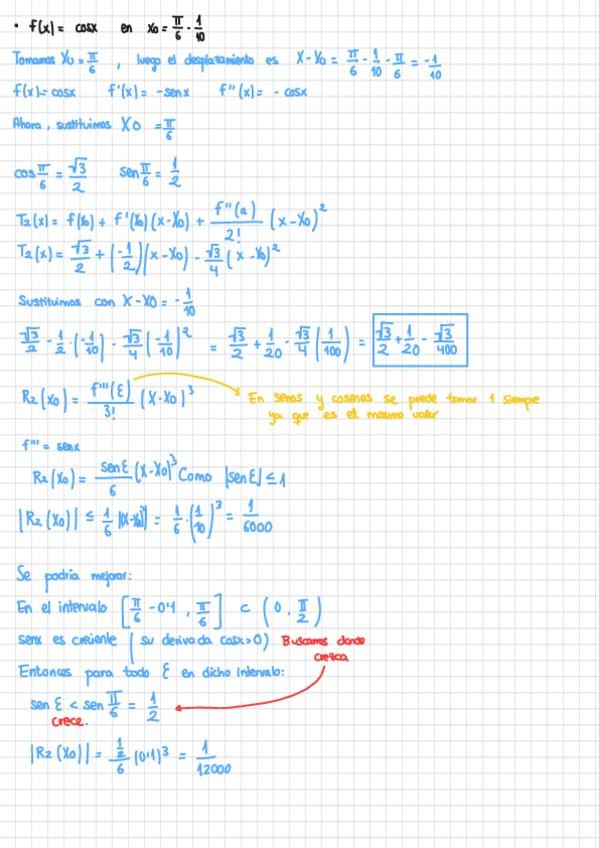 • f(x) = cosx en x₀ = π/6 - 1/10
Tomamos X₀ = π/6 , luego el desplazamiento es X-X₀ = π/6 - 1/10 - π/6 = -1/10
f(x) = cosx f'(x) = -senx f''(x) = - cosx
Ahora, sustituimos X₀ = π/6
cos π/6 = √3/2 sen π/6 = 1/2
T₂(x) = f(x₀) + f'(x₀)(x-x₀) + f''(a)/2! (x-x₀)²
T₂(x) = √3/2 + (-1/2)(x-x₀) - √3/4 (x-x₀)²
Sustituimos con X-X₀ = -1/10
√3/2 - 1/2 · (-1/10) - √3/4 (-1/10)² = √3/2 + 1/20 - √3/4 (1/100) = √3/2 + 1/20 - √3/400
R₂(x₀) = f'''(ε)/3! (x-x₀)³ En senos y cosenos se puede tomar 1 siempre
ya que es el maximo valor
f''' = senx
R₂(x₀) = senε/6 (x-x₀)³ Como |senε| ≤ 1
|R₂(x₀)| ≤ 1/6 |(x-x₀)³| = 1/6 · (1/10)³ = 1/6000
Se podría mejorar:
En el intervalo [π/6 - 0'1 , π/6] ⊂ (0, π/2)
senx es creciente ( su derivada cosx>0) Buscamos donde
crezca
Entonces para todo ε en dicho intervalo:
sen ε < sen π/6 = 1/2
crece.
|R₂(x₀)| = 1/2/6 (0'1)³ = 1/12000